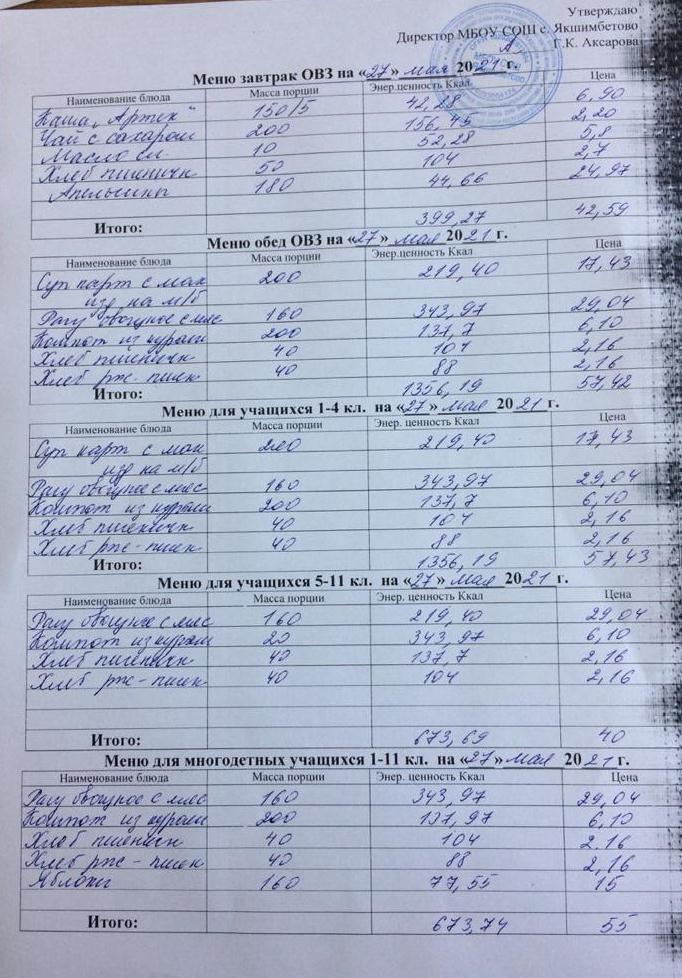 Утверждаю
Директор МБОУ СОШ с. Якшимбетово
Г.К. Аксарова
Меню завтрак ОВЗ на «27» мая 2021 г.
Наименование блюда Масса порции Энер.ценность Ккал Цена
Каша "Артек" 150/5 42,28 6,90
Чай с сахаром 200 156,45 2,20
Масло сл 10 52,28 5,8
Хлеб пшеничн 50 104 2,7
Апельсины 180 44,66 24,97
Итого: 399,27 42,59
Меню обед ОВЗ на «27» мая 2021 г.
Наименование блюда Масса порции Энер.ценность Ккал Цена
Суп карт с мак 200 219,40 17,43
изд на м/б
Рагу овощное с мяс 160 343,97 29,04
Компот из кураги 200 137,7 6,10
Хлеб пшеничн 40 104 2,16
Хлеб рж-пшен 40 88 2,16
Итого: 1356,19 57,42
Меню для учащихся 1-4 кл. на «27» мая 2021 г.
Наименование блюда Масса порции Энер. ценность Ккал Цена
Суп карт с мак 200 219,40 17,43
изд на м/б
Рагу овощное с мяс 160 343,97 29,04
Компот из кураги 200 137,7 6,10
Хлеб пшеничн 40 104 2,16
Хлеб рж-пшен 40 88 2,16
Итого: 1356,19 57,43
Меню для учащихся 5-11 кл. на «27» мая 2021 г.
Наименование блюда Масса порции Энер. ценность Ккал Цена
Рагу овощное с мяс 160 219,40 29,04
Компот из кураги 20 343,97 6,10
Хлеб пшеничн 40 137,7 2,16
Хлеб рж-пшен 40 104 2,16
Итого: 673,69 40
Меню для многодетных учащихся 1-11 кл. на «27» мая 2021 г.
Наименование блюда Масса порции Энер. ценность Ккал Цена
Рагу овощное с мяс 160 343,97 29,04
Компот из кураги 200 137,97 6,10
Хлеб пшеничн 40 104 2.16
Хлеб рж-пшен 40 88 2,16
Яблоки 160 77,55 15
Итого: 673,74 55